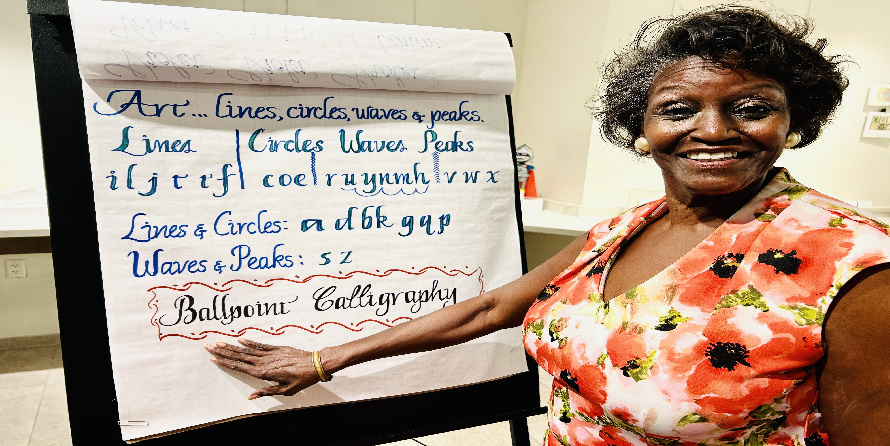 Art... lines, circles, waves & peaks.
Lines | Circles Waves Peaks
i l j t r f | c o e | r u y n m h | v w x
Lines & Circles: a d b k g q p
Waves & Peaks: s z
Ballpoint Calligraphy